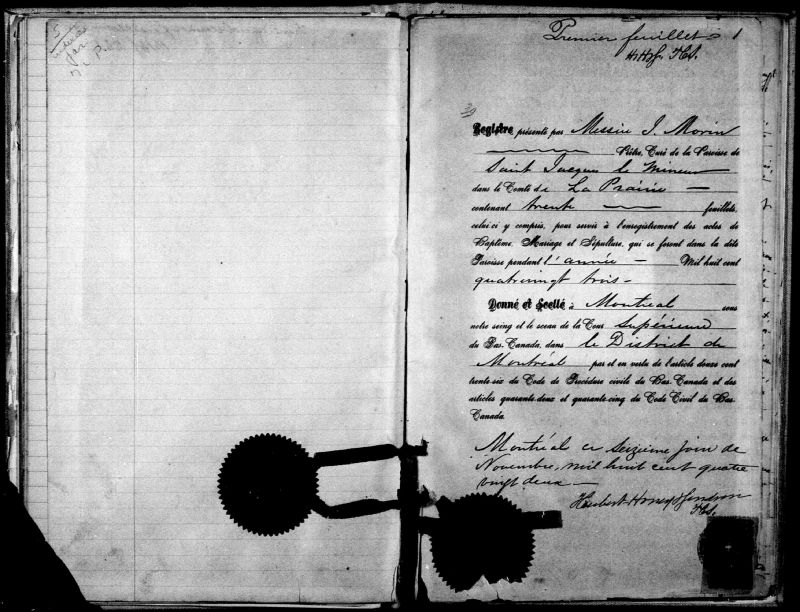 5
par
Premier feuillet 1
39
Registre présenté par Messire J. Morin
Prêtre, Curé de la Paroisse de
Saint Jacques le Mineur
dans le Comté de La Prairie —
contenant trente feuillets,
celui-ci y compris, pour servir à l'enregistrement des actes de
Baptême, Mariage et Sépulture, qui se feront dans la dite
Paroisse pendant l'année — Mil huit cent
quatrevingt trois —
Donné et Scellé à Montréal sous
notre seing et le sceau de la Cour Supérieure
du Bas-Canada, dans le District de
Montréal par et en vertu de l'article douze cent
trente-six du Code de Procédure civile du Bas-Canada et des
articles quarante-deux et quarante-cinq du Code Civil du Bas-
Canada.
Montréal ce Seizieme jour de
Novembre, mil huit cent quatre
vingt deux —